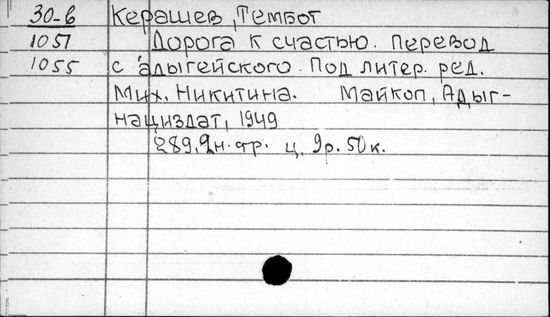 30-6 Керашев, Тембот
1051 Дорога к счастью. Перевод
1055 с адыгейского. Под литер. ред.
Мих. Никитина. Майкоп, Адыг-
нациздат, 1949
289, н. стр. ц. 9р. 50к.